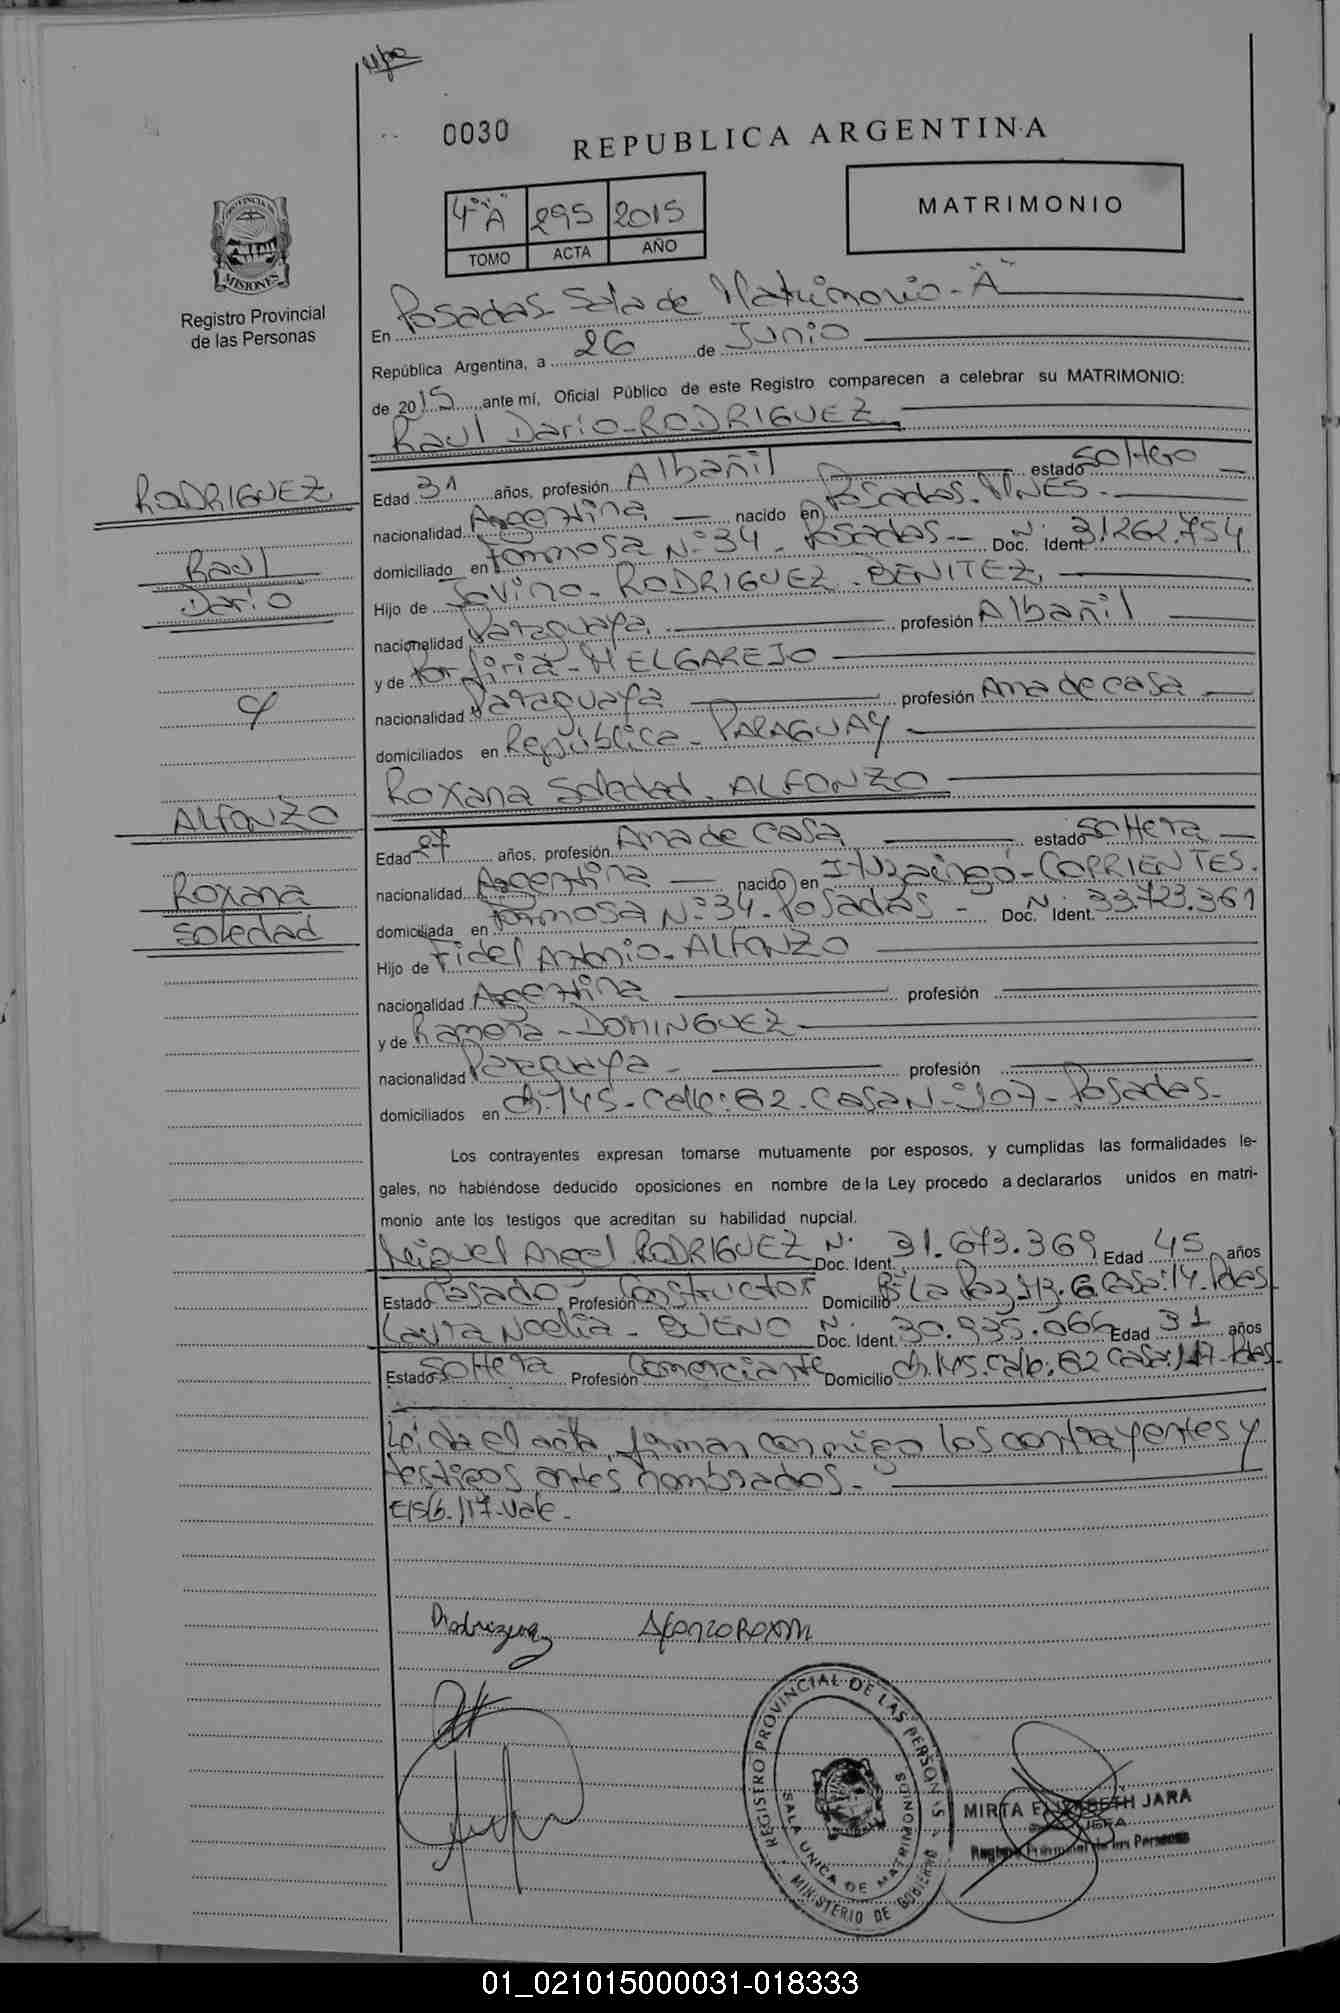 0030
REPUBLICA ARGENTINA
4° "A" 295 2015
TOMO ACTA AÑO
MATRIMONIO
PROVINCIA DE
MISIONES
Registro Provincial
de las Personas
En Posadas Sala de Matrimonio - "A"
República Argentina, a 26 de Junio
de 2015 ante mí, Oficial Público de este Registro comparecen a celebrar su MATRIMONIO:
Raul Dario - RODRIGUEZ
RODRIGUEZ
Raul
Dario
Edad 31 años, profesión Albañil estado Soltero
nacionalidad Argentina nacido en Posadas. MNES.
domiciliado en Formosa N° 34 - Posadas Doc. Ident. N° 31.262.754
Hijo de Jovino - RODRIGUEZ - BENITEZ
nacionalidad Paraguaya profesión Albañil
y de Porfiria - MELGAREJO
nacionalidad Paraguaya profesión Ama de casa
domiciliados en República - PARAGUAY
Roxana Soledad. ALFONZO
y
ALFONZO
Roxana
Soledad
Edad 27 años, profesión Ama de casa estado Soltera
nacionalidad Argentina nacido en Ituzaingó - CORRIENTES.
domiciliada en Formosa N° 34 - Posadas - Doc. Ident. N° 33.723.361
Hijo de Fidel Antonio - ALFONZO
nacionalidad Argentina profesión
y de Ramona - DOMINGUEZ
nacionalidad Paraguaya - profesión
domiciliados en Ch. 145 - Calle: 62 - Casa N° 107 - Posadas.
Los contrayentes expresan tomarse mutuamente por esposos, y cumplidas las formalidades le-
gales, no habiéndose deducido oposiciones en nombre de la Ley procedo a declararlos unidos en matri-
monio ante los testigos que acreditan su habilidad nupcial.
Miguel Angel RODRIGUEZ Doc. Ident. N° 31.673.369 Edad 45 años
Estado Casado Profesión Constructor Domicilio B° La Paz Casa: 14. Pdas
Laura Noelia - BUENO Doc. Ident. N° 30.935.066 Edad 31 años
Estado Soltera Profesión Comerciante Domicilio Ch. 145. Calle: 62 Casa: 117 - Pdas.
Leída el acta, firman conmigo los contrayentes y
testigos antes nombrados.
E/S/b. /17. Vale.
Alfonzo Roxana
REGISTRO PROVINCIAL DE LAS PERSONAS
SALA UNICA DE MATRIMONIOS
MINISTERIO DE GOBIERNO
MIRTA ELIZABETH JARA
Registro Provincial de las Personas
01_021015000031-018333